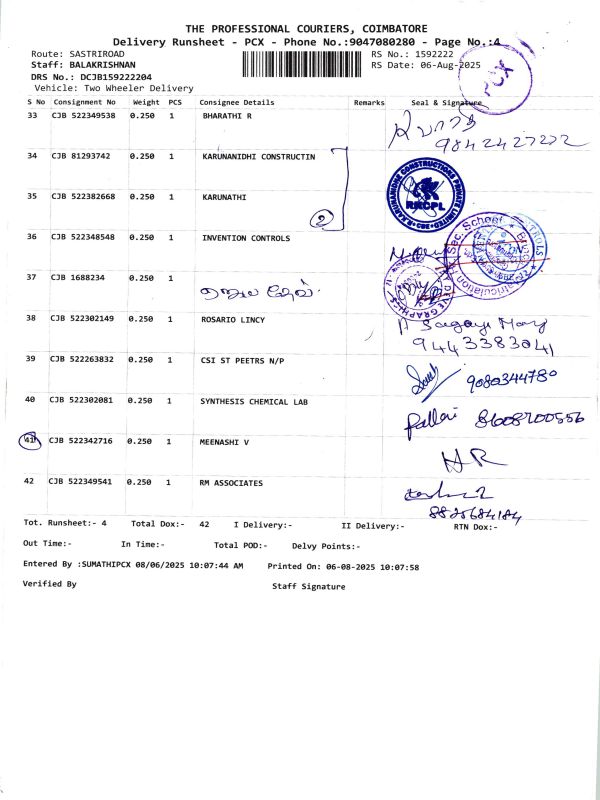 THE PROFESSIONAL COURIERS, COIMBATORE
Delivery Runsheet - PCX - Phone No.:9047080280 - Page No.:4
Route: SASTRIROAD
RS No.: 1592222
Staff: BALAKRISHNAN
RS Date: 06-Aug-2025
DRS No.: DCJB159222204
Vehicle: Two Wheeler Delivery
PCX
S No Consignment No Weight PCS Consignee Details Remarks Seal & Signature
33 CJB 522349538 0.250 1 BHARATHI R
9842427222
34 CJB 81293742 0.250 1 KARUNANIDHI CONSTRUCTIN
KARUNANIDHI CONSTRUCTIONS PRIVATE LIMITED
RKCPL
CBE
35 CJB 522382668 0.250 1 KARUNATHI
2
36 CJB 522348548 0.250 1 INVENTION CONTROLS
37 CJB 1688234 0.250 1
38 CJB 522302149 0.250 1 ROSARIO LINCY
A Sagaya Mary
9443383041
39 CJB 522263832 0.250 1 CSI ST PEETRS N/P
9080344780
40 CJB 522302081 0.250 1 SYNTHESIS CHEMICAL LAB
Pallavi 8608700556
41 CJB 522342716 0.250 1 MEENASHI V
42 CJB 522349541 0.250 1 RM ASSOCIATES
8825684184
Tot. Runsheet:- 4 Total Dox:- 42 I Delivery:- II Delivery:- RTN Dox:-
Out Time:- In Time:- Total POD:- Delvy Points:-
Entered By :SUMATHIPCX 08/06/2025 10:07:44 AM Printed On: 06-08-2025 10:07:58
Verified By Staff Signature